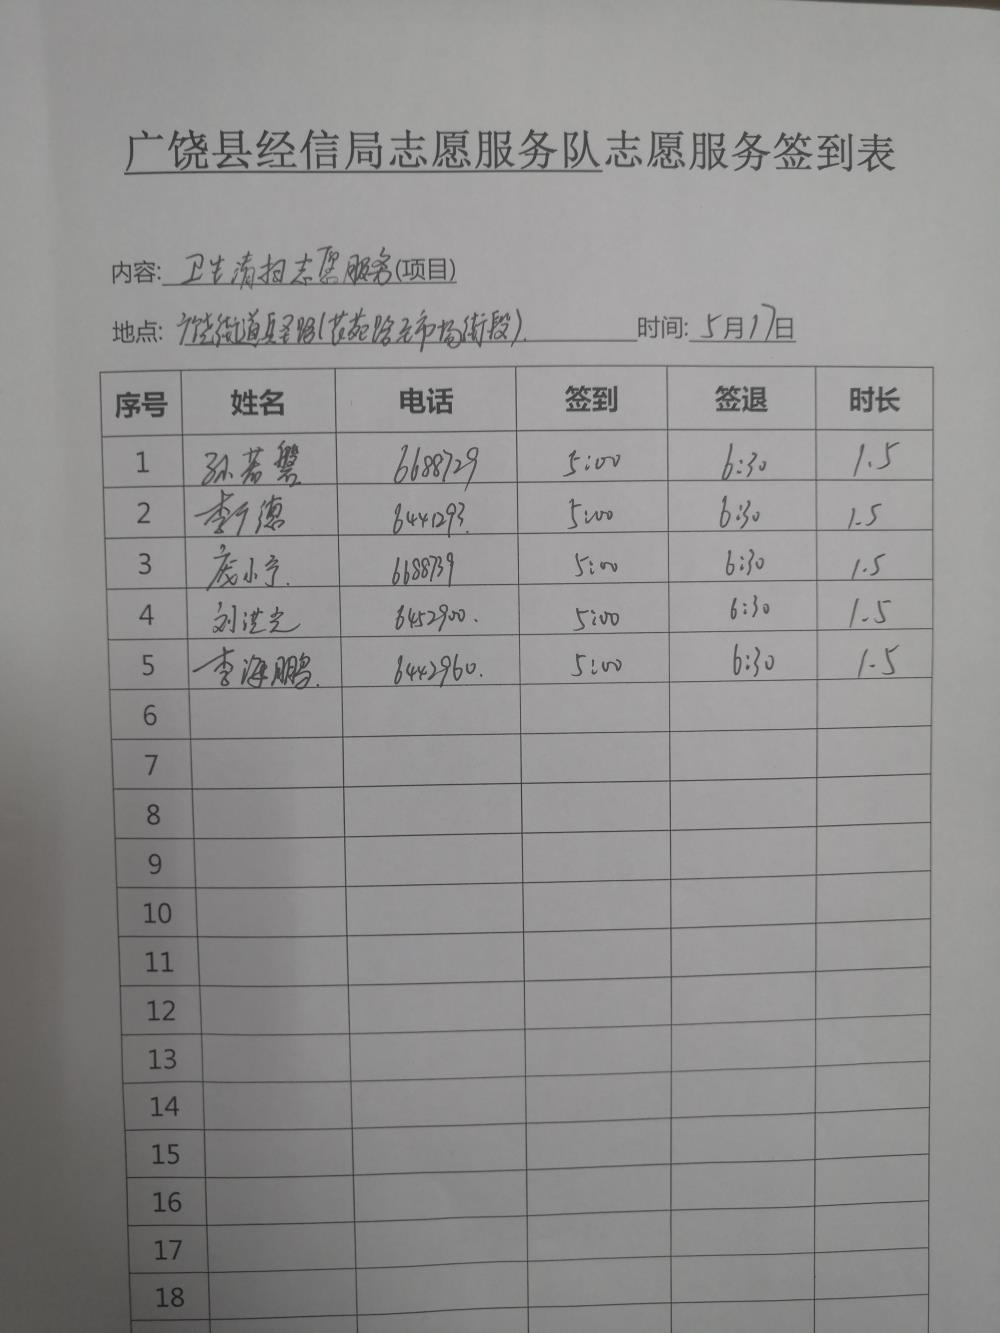 广饶县经信局志愿服务队志愿服务签到表
内容: 卫生清扫志愿服务(项目)
地点: 广饶街道 路( 市场街段). 时间: 5月17日
序号 姓名 电话 签到 签退 时长
1 孙若磐 6688729 5:00 6:30 1.5
2 李 德 6441293. 5:00 6:30 1.5
3 庞小宁. 6688739 5:00 6:30 1.5
4 刘洪光 6452900. 5:00 6:30 1.5
5 李海鹏. 6442960. 5:00 6:30 1.5
6
7
8
9
10
11
12
13
14
15
16
17
18